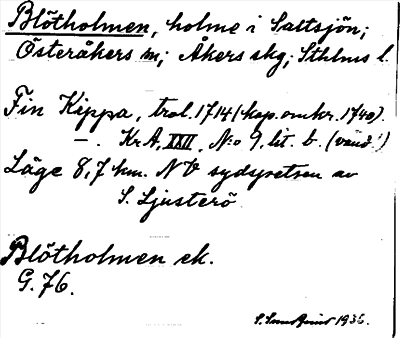 Blötholmen, holme i Saltsjön;
Österåkers sn; Åkers skg; Sthlms l.
Fin Kippa, trol. 1714 (kop. omkr. 1740).
—. KrA, XXII, N:o 9, lit. b. (vänd!)
Läge 8,7 km. NV sydspetsen av
S. Ljusterö
Blötholmen ek.
G. 76.
S. 1936.